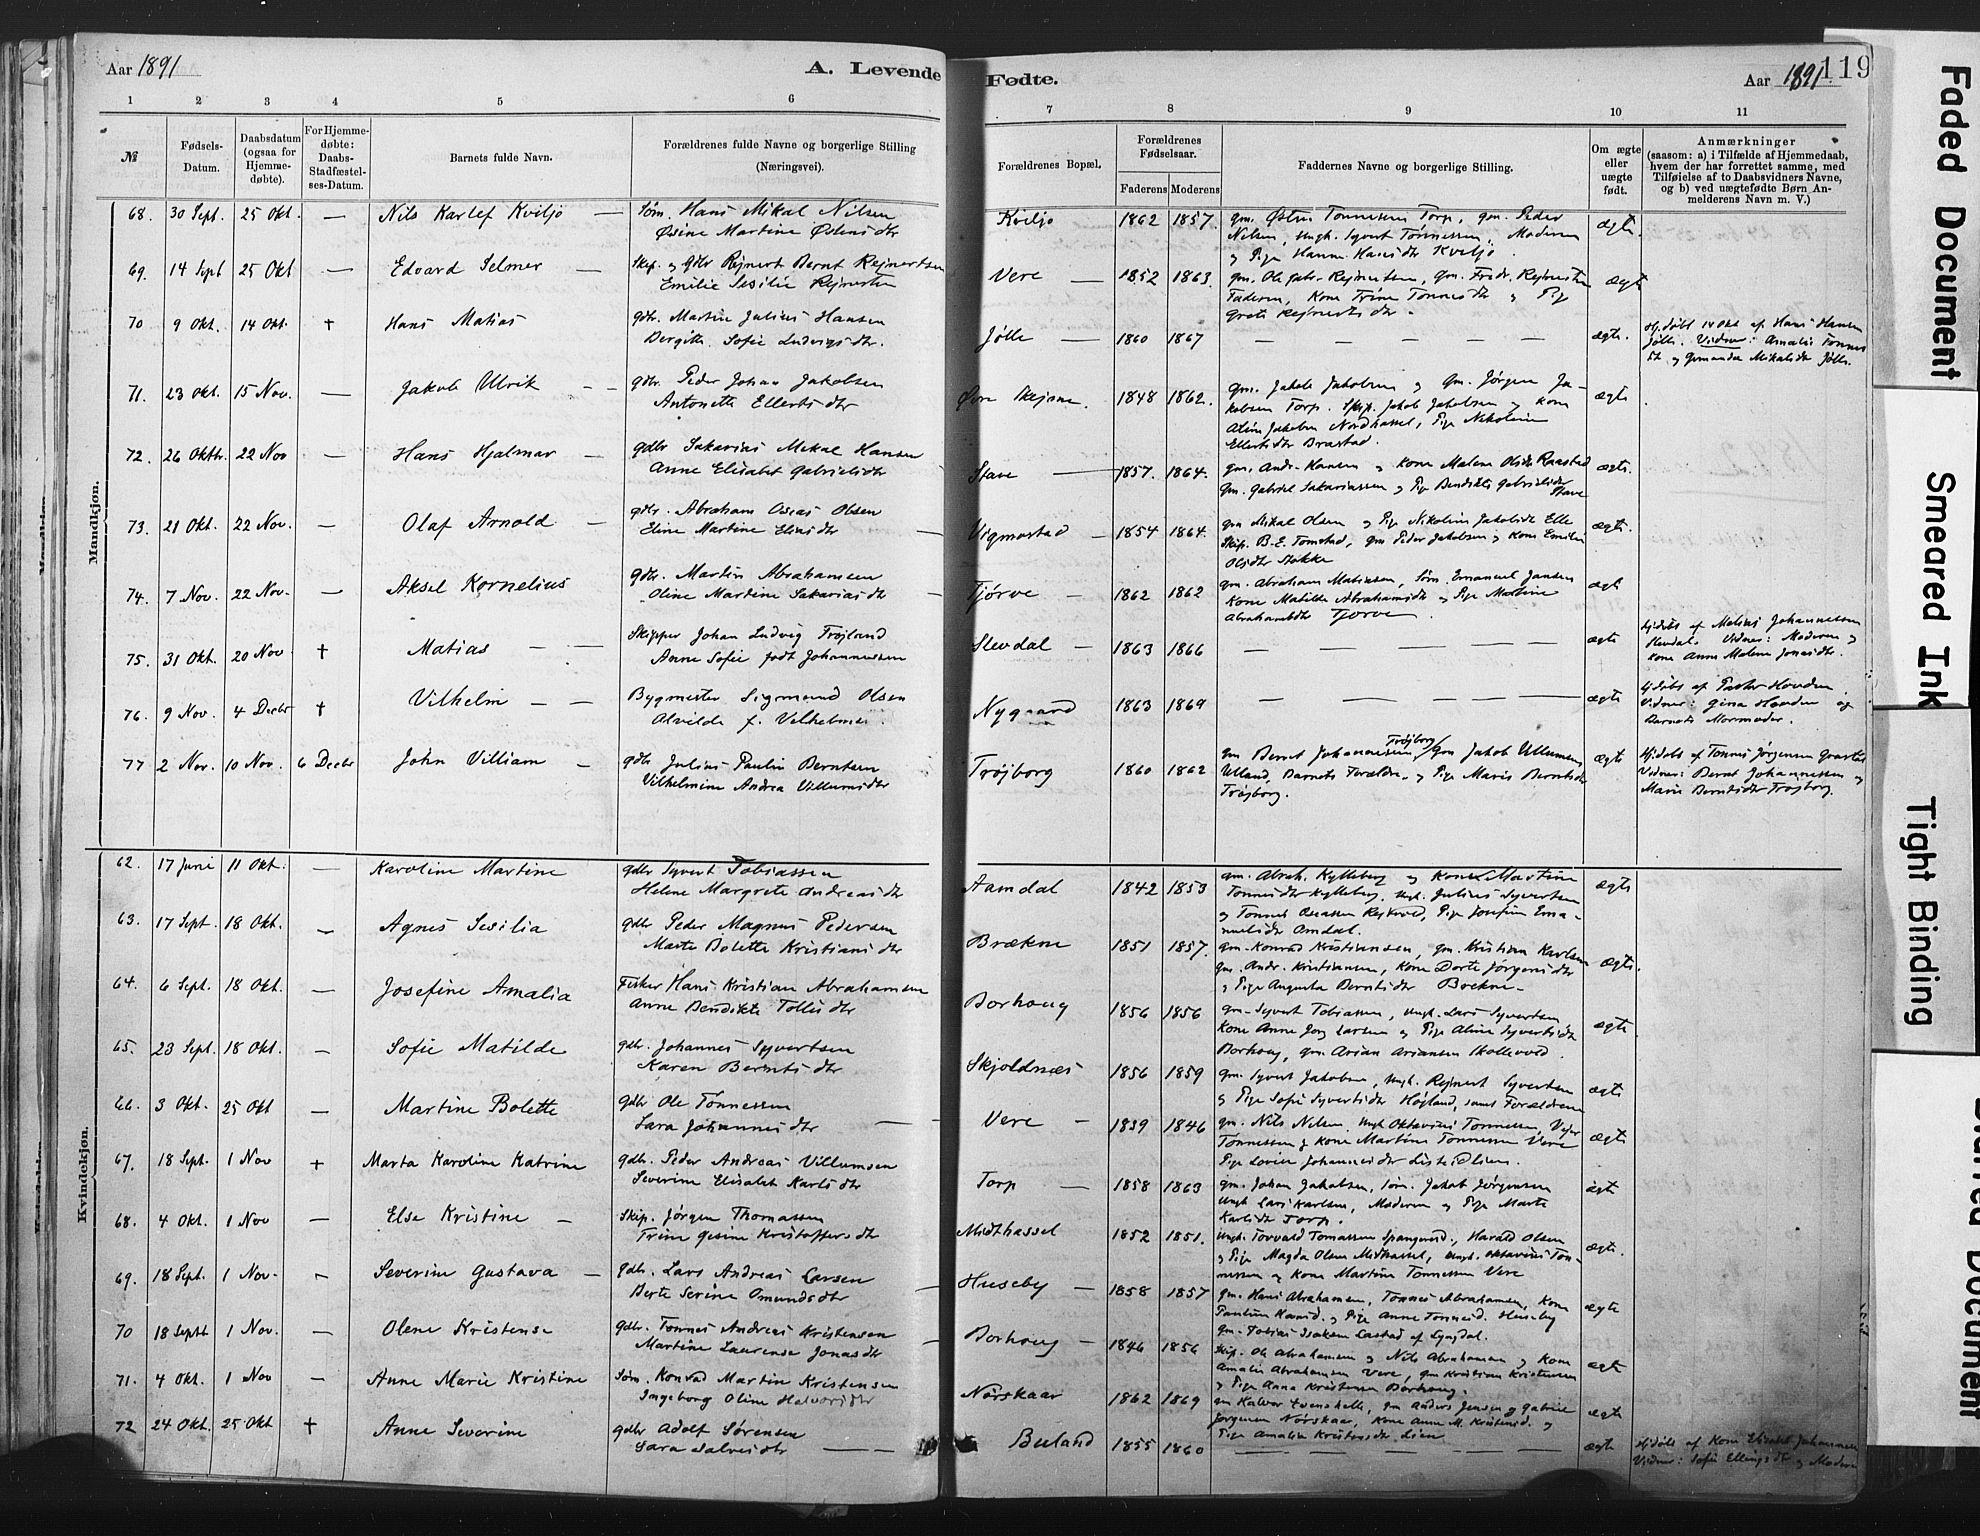 Aar 1891
A. Levende
1 2 3 4 5 6
№
Fødsels-
Datum.
Daabsdatum
(ogsaa for
Hjemme-
døbte).
For Hjemme-
døbte:
Daabs-
Stadfæstel-
ses-Datum.
Barnets fulde Navn.
Forældrenes fulde Navne og borgerlige Stilling
(Næringsvei).
Mandkjøn.
68. 30 Sept. 25 Okt. — Nils Karlef Kviljo — Søm. Hans Mikal Nilsen
Østnsdtr
69. 14 Sept 25 Okt — Edvard Selmer — Skip. og gdbr Rejnert Bernt Rejnertsen
Emilie Sesilie
70 9 Okt. 14 Okt. † Hans Matias gdbr. Martin Julius Hansen
Bergitte Sofie Ludvigsdtr.
71. 23 Okt. 15 Nov. — Jakob Ulrik — — gdbr. Peder Johan Jakobsen
Antonette Ellertsdtr
72. 26 Oktbr. 22 Nov — Hans Hjalmar — gdbr Sakarias Mikal Hansen
Anne Elisabet Gabrielsdtr
73. 21 Okt. 22 Nov. — Olaf Arnold — gdbr. Abraham Oseas Olsen
Eline Martine Eliasdtr
74. 7 Nov. 22 Nov. — Aksel Kornelius gdbr. Martin Abrahamsen
Oline Martine Sakariasdtr
75. 31 Okt. 20 Nov. † Matias — — Skipper Johan Ludvig Frøjland
Anne Sofie født Johannessen
76. 9 Nov. 4 Decbr † Vilhelm — — Bygmester Sigmund Olsen
Alvilde f. Vilhelmsen.
77 2 Nov. 10 Nov. 6 Decbr John Villiam — gdbr Julius Paulin Berntsen
Vilhelmine Andrea Villumsdtr
Kvindekjøn.
62. 17 Juni 11 Okt. — Karoline Martine gdbr Syvert Tobiassen
Helene Margrete Andreasdtr
63. 17 Sept. 18 Okt. — Agnes Sesilia gdbr Peder Magnus Pedersen
Marte Bolette Kristiansdtr
64. 6 Sept. 18 Okt. — Josefine Amalia Fisker Hans Kristian Abrahamsen
Anne Bendikte Tollisdtr
65. 23 Sept. 18 Okt. — Sofie Matilde gdbr. Johannes Syvertsen
Karen Berntsdtr
66. 3 Okt. 25 Okt — Martine Bolette gdbr Ole Tønnessen
Sara Johannesdtr
67. 18 Sept. 1 Nov † Marta Karoline Katrine gdbr. Peder Andreas Villumsen
Severine Elisabet Karlsdtr
68. 4 Okt. 1 Nov — Else Kristine — Skip. Jørgen Thomassen
Trine Gesine Kristoffersdtr
69. 18 Sept. 1 Nov. — Severine Gustava — gdbr. Lars Andreas Larsen
Berte Serine Omundsdtr
70 18 Septbr 1 Nov. — Olene Kristense gdbr. Tønnes Andreas Kristensen
Martine Laurense Jonasdtr
71. 4 Okt. 1 Nov — Anne Marie Kristine Søm. Konrad Martin Kristensen
Ingeborg Oline Halvorsdtr
72 24 Okt. 25 Okt † Anne Severine gdbr Adolf Sørensen
Sara Salvesdtr — —
Fødte.
Aar 1891. 119
7 8 9 10 11
Forældrenes Bopæl.
Forældrenes
Fødselsaar.
Faderens Moderens
Faddernes Navne og borgerlige Stilling.
Om ægte
eller
uægte
født.
Anmærkninger
(saasom: a) i Tilfælde af Hjemmedaab,
hvem der har forrettet samme, med
Tilføielse af to Daabsvidners Navne,
og b) ved uægtefødte Børn An-
melderens Navn m. V.)
Kviljo 1862 1857. gm. Østen Tønnessen Torp, gm. Peder
Nilsen, ungk. Syvert Tønnessen, Moderen
og Pige Hanne Hansdtr Kviljo. ægte.
Vere — 1852 1863. gm. Ole Gabr. Rejnertsen, gm. Fredr. Rejnertsen
Faderen, Kone Trine Tønnesdtr og Pige
Grete Rejnertsdtr. ægte
Jølle — 1860 1867 — — — — — ægte. Hj.døbt 14 Okt af Hans Hansen
Jølle. Vidner: Amalie Tønnes
dt. og Gemanda Mikalsdtr Jølle.
Øvre Skejsne. 1848 1862. gm. Jakob Jakobsen og gm. Jørgen Ja-
kobsen Torp. Skip. Jakob Jakobsen og Kone
Aline Jakobsen Nordhassel, Pige Nikoline
Ellertsdtr Brastad. ægte
Stave — 1857. 1864. gm. Andr. Hansen og Kone Malene Olsdtr Raastad
gm. Gabriel Sakariassen og Pige Bendikte Gabrielsdtr
Stave ægte.
Vigmostad — 1854 1864. gm Mikal Olsen og Pige Nikoline Jakobsdtr Elle
Skip. B. E. Tomstad, gm Peder Jakobsen og Kone Emilie
Olsdtr Stokke ægte.
Tjørve — 1862 1862 gm. Abraham Matiassen, Søm. Emanuel Jansen
Kone Matilde Abrahamsdtr og Pige Martine
Abrahamsdtr Tjørve. ægte
Slevdal — 1863 1866 — — — — — ægte Hj.døbt af Matias Johannessen
Slevdal. Vidner: Moderen og
Kone Anne Malene Jonasdtr.
Nygaard 1863 1869 — — — — — ægte Hj.døbt af Pastor Hovden
Vidner: Gina Hovden og
Barnets Mormoder.
Trøjborg 1860 1862 gm Bernt Johannessen Trøjborg, gm Jakob Villumsen
Ulland, Barnets Forældre og Pige Marie Berntsdtr
Trøjborg. ægte Hj.døbt af Tønnes Jørgensen
Vidner: Bernt Johannessen og
Marie Berntsdtr Trøjborg.
Aamdal 1842 1853 gm. Abrah. Kylleberg og Kone Martine
Tønnesdtr Kylleberg. Ungk. Julius Syvertsen
og Tønnes Oseassen, Pige Josefine Ema-
nuelsdtr Amdal. ægte
Brækne 1851 1857. gm. Konrad Kristiansen, gm. Kristian Karlsen
gm. Andr. Kristiansen, Kone Dorte Jørgensdtr
og Pige Augusta Berntsdtr Brekne. ægte.
Borhoug 1856 1856 gm. Syvert Tobiassen, ungk. Lars Syvertsen
Kone Anne Larsen og Pige Aline Syvertsdtr
Borhoug, gm. Arian Ariansen Skollevold. ægte
Skjoldnæs 1856 1859 gm. Syvert Jakobsen, ungk. Rejnert Syvertsen
og Pige Sofie Syvertsdtr Højland, samt Forældrene ægte
Vere — 1839 1846 gm. Nils Nilsen, ungk Oktavius Tønnessen,
Tønnessen og Kone Martine Tønnessen Vere
Pige Lovise Johannesdtr. ægte
Torp — 1858 1863 gm. Johan Jakobsen, Søm. Jakob Jørgensen
Ungk Lars Karlsen, Moderen og Pige Marte
Karlsdtr Torp. ægte
Midthassel 1852 1851. Ungk. Torvald Tomassen Spangereid, Harald Olsen
og Pige Magda Olsen Midthassel, ungk. Oktavius Tøn-
nessen og Kone Martine Tønnessen Vere ægte.
Huseby — 1858 1857 gm. Hans Abrahamsen, Tønnes Abrahamsen, Kone
Pauline Hansd. og Pige Anne Tønnesd. Huseby
gm. Tobias Isaksen Lastad af Lyngdal. ægte
Borhoug — 1846 1856 Skip. Ole Abrahamsen og Nils Abrahamsen og Kone
Amalie Abrahamsen Vere, gm Kristian Kristensen
og Pige Anna Kristensen Borhoug. ægte
Nörskaar 1862 1869 gm Halvor Svenshelle, gm Anders Jensen og Gabriel
Jørgensen Nørskaar, Kone Anne M. Kristensd. og
Pige Amalie Kristensdtr Lien ægte
Buland 1855 1860 — — — — ægte Hj.døbt af Kone Elisabet Johannesen
Vidner: Sofie Ellingsdtr og Moderen
Faded Document
Smeared Ink
Tight Binding
Blurred Document